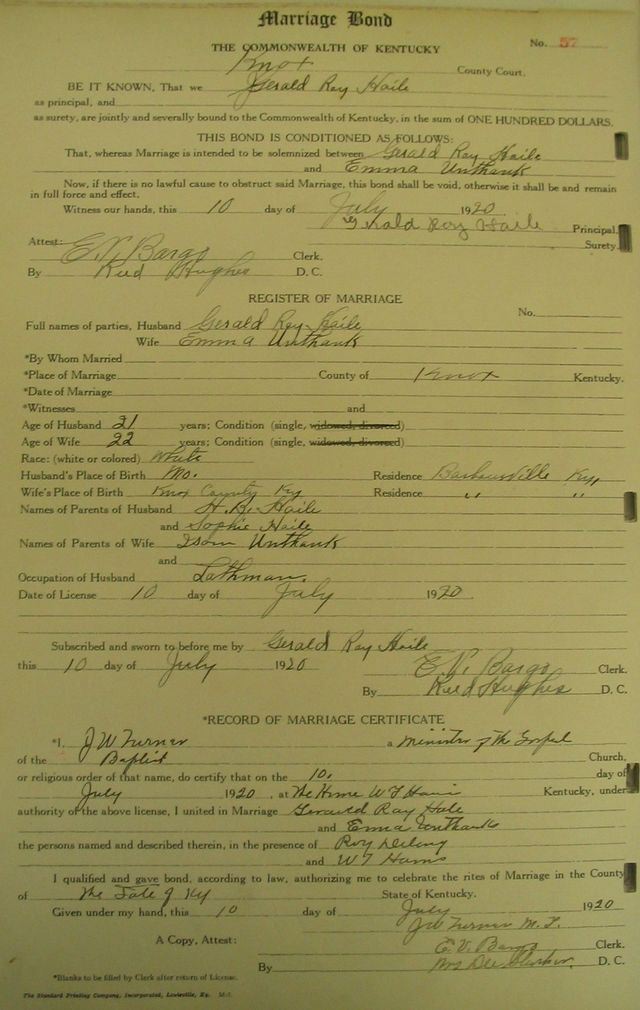 Marriage Bond
THE COMMONWEALTH OF KENTUCKY
No. 57
Knox County Court.
BE IT KNOWN, That we Gerald Ray Haile
as principal, and
as surety, are jointly and severally bound to the Commonwealth of Kentucky, in the sum of ONE HUNDRED DOLLARS.
THIS BOND IS CONDITIONED AS FOLLOWS:
That, whereas Marriage is intended to be solemnized between Gerald Ray Haile
and Emma Unthank
Now, if there is no lawful cause to obstruct said Marriage, this bond shall be void, otherwise it shall be and remain
in full force and effect.
Witness our hands, this 10 day of July 1920
Gerald Roy Haile Principal.
Attest: Surety.
E. V. Bargo Clerk.
By Reed Hughes D. C.
REGISTER OF MARRIAGE
No.
Full names of parties, Husband Gerald Ray Haile
Wife Emma Unthank
*By Whom Married
*Place of Marriage County of Knox Kentucky.
*Date of Marriage
*Witnesses and
Age of Husband 21 years; Condition (single, widowed, divorced)
Age of Wife 22 years; Condition (single, widowed, divorced)
Race: (white or colored) White
Husband's Place of Birth Mo. Residence Barbourville Ky,
Wife's Place of Birth Knox County Ky Residence " "
Names of Parents of Husband H. B. Haile
and Sophie Haile
Names of Parents of Wife Isom Unthank
and
Occupation of Husband Lathman.
Date of License 10 day of July 1920.
Subscribed and sworn to before me by Gerald Ray Haile
this 10 day of July 1920 E. V. Bargo Clerk.
By Reed Hughes D. C.
*RECORD OF MARRIAGE CERTIFICATE
*I, J W Turner a minister of the Gospel
of the Baptist Church,
or religious order of that name, do certify that on the 10. day of
July 1920, at The Home W T Kentucky, under
authority of the above license, I united in Marriage Ray Hale
and Emma Unthank
the persons named and described therein, in the presence of Roy
and W T
I qualified and gave bond, according to law, authorizing me to celebrate the rites of Marriage in the County
of The State of Ky State of Kentucky.
Given under my hand, this 10 day of July 1920
J W Turner M. G.
A Copy, Attest: E. V. Bargo Clerk.
By Mrs Dee D. C.
*Blanks to be filled by Clerk after return of License.
The Standard Printing Company, Incorporated, Louisville, Ky.